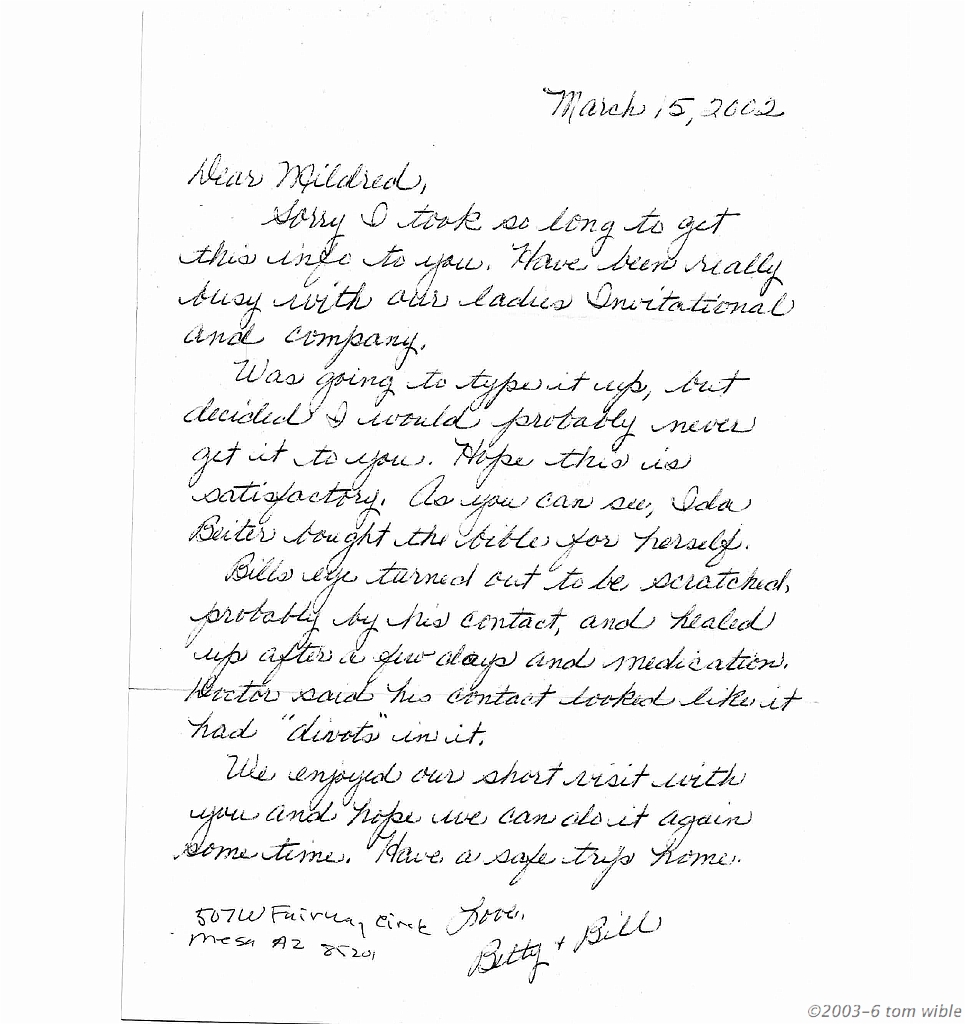 March 15, 2002
Dear Mildred,
Sorry I took so long to get
this info to you. Have been really
busy with our ladies Invitational
and company.
Was going to type it up, but
decided I would probably never
get it to you. Hope this is
satisfactory. As you can see, Ida
Beiter bought the bible for herself.
Bills eye turned out to be scratched,
probably by his contact, and healed
up after a few days and medication.
Doctor said his contact looked like it
had "divots" in it.
We enjoyed our short visit with
you and hope we can do it again
some time. Have a safe trip home.
Love,
Betty + Bill
507 W Fairway Circle
Mesa AZ 85201
©2003-6 tom wible